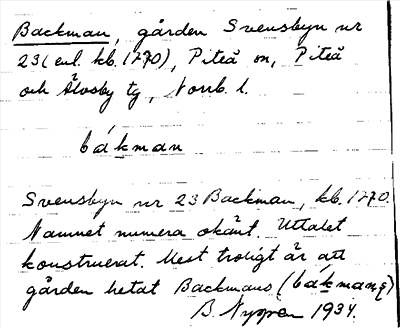 Backman, gården Svensbyn nr
23 (enl. kb. 1770), Piteå sn, Piteå
och Älvsby tg, Norrb. l.
bákman
Svensbyn nr 23 Backman, kb. 1770.
Namnet numera okänt. Uttalet
konstruerat. Mest troligt är att
gården hetat Backmans (bákmanς)
B. Nyman 1934.